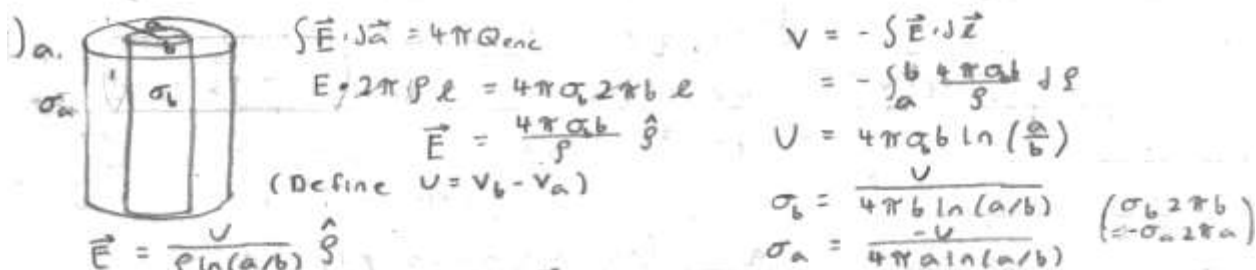 ) a.
a
b
σₐ
σ_b
∫E⃗·da⃗ = 4πQenc
E·2πρl = 4πσ_b 2πb l
E⃗ = 4πσ_b b / ρ ρ̂
(Define U = V_b - Vₐ)
E⃗ = U / ρ ln(a/b) ρ̂
V = -∫E⃗·dl⃗
= -∫ₐᵇ 4πσ_b b / ρ dρ
U = 4πσ_b b ln(a/b)
σ_b = U / 4πb ln(a/b)
(σ_b 2πb
= -σₐ 2πa)
σₐ = -U / 4πa ln(a/b)